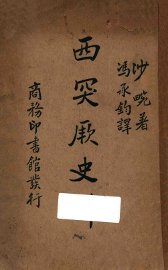 沙畹著
馮承鈞譯
西突厥史
商務印書館發行